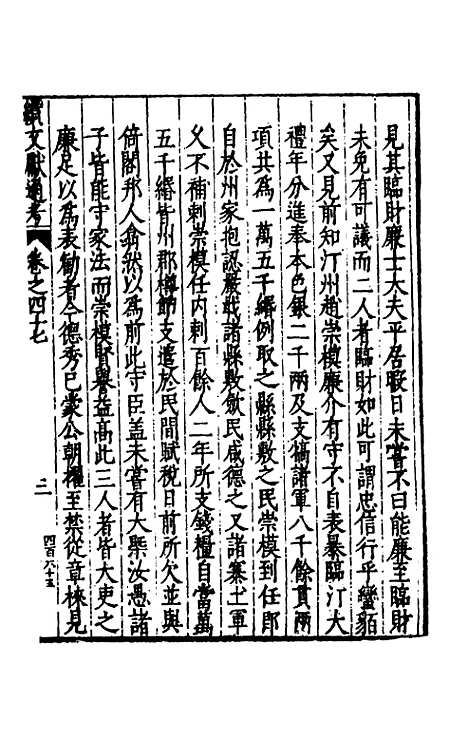 見其臨財廉士大夫平居暇日未嘗不曰能廉至臨財
未免有可議而二人者臨財如此可謂忠信行乎蠻貊
矣又見前知汀州趙崇模廉介有守不自表暴臨汀大
禮年分進奉本色銀二千兩及支犒諸軍八千餘貫兩
項共為一萬五千緡例取之縣縣敷之民崇模到任即
自於州家抱認嚴戢諸縣敷斂民咸德之又諸寨土軍
久不補刺崇模任內刺百餘人二年所支錢糧自當萬
五千緡皆州郡樽節支遣於民間賦稅日前所欠並與
倚閣邦人翕然以為前此守臣盖未嘗有大槩汝愚諸
子皆能守家法而崇模賢譽益高此三人者皆大吏之
廉足以為表勸者今德秀已蒙公朝擢至禁從章楝見
續文獻通考 卷之四十七 二 四百六十五